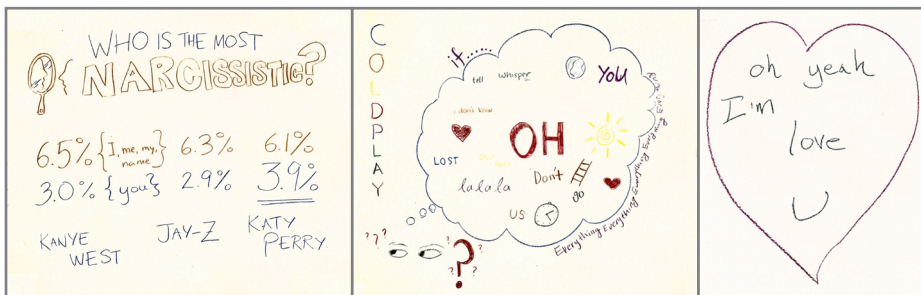 WHO IS THE MOST
NARCISSISTIC?
6.5% {I, me, my, name} 6.3% 6.1%
3.0% {you} 2.9% 3.9%
KANYE WEST
JAY-Z
KATY PERRY
COLDPLAY
if......
tell
whisper
YOU
I don't know
OH
LOST
Don't
lalalala
go
US
Everything Everything Everything Everything Everything
? ? ?
?
? ? ? ?
oh yeah
I'm
love
U